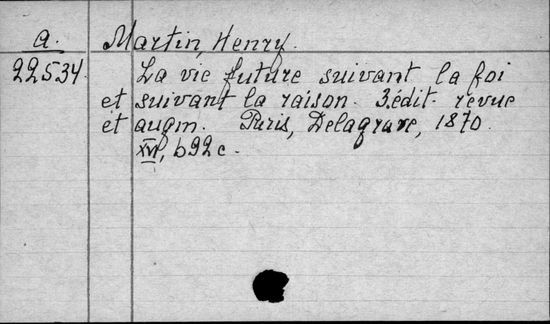 a. Martin, Henry.
22534. La vie future suivant la foi
et suivant la raison. 3. édit. revue
et augm. Paris, Delagrave, 1870.
XVI, 692 c.